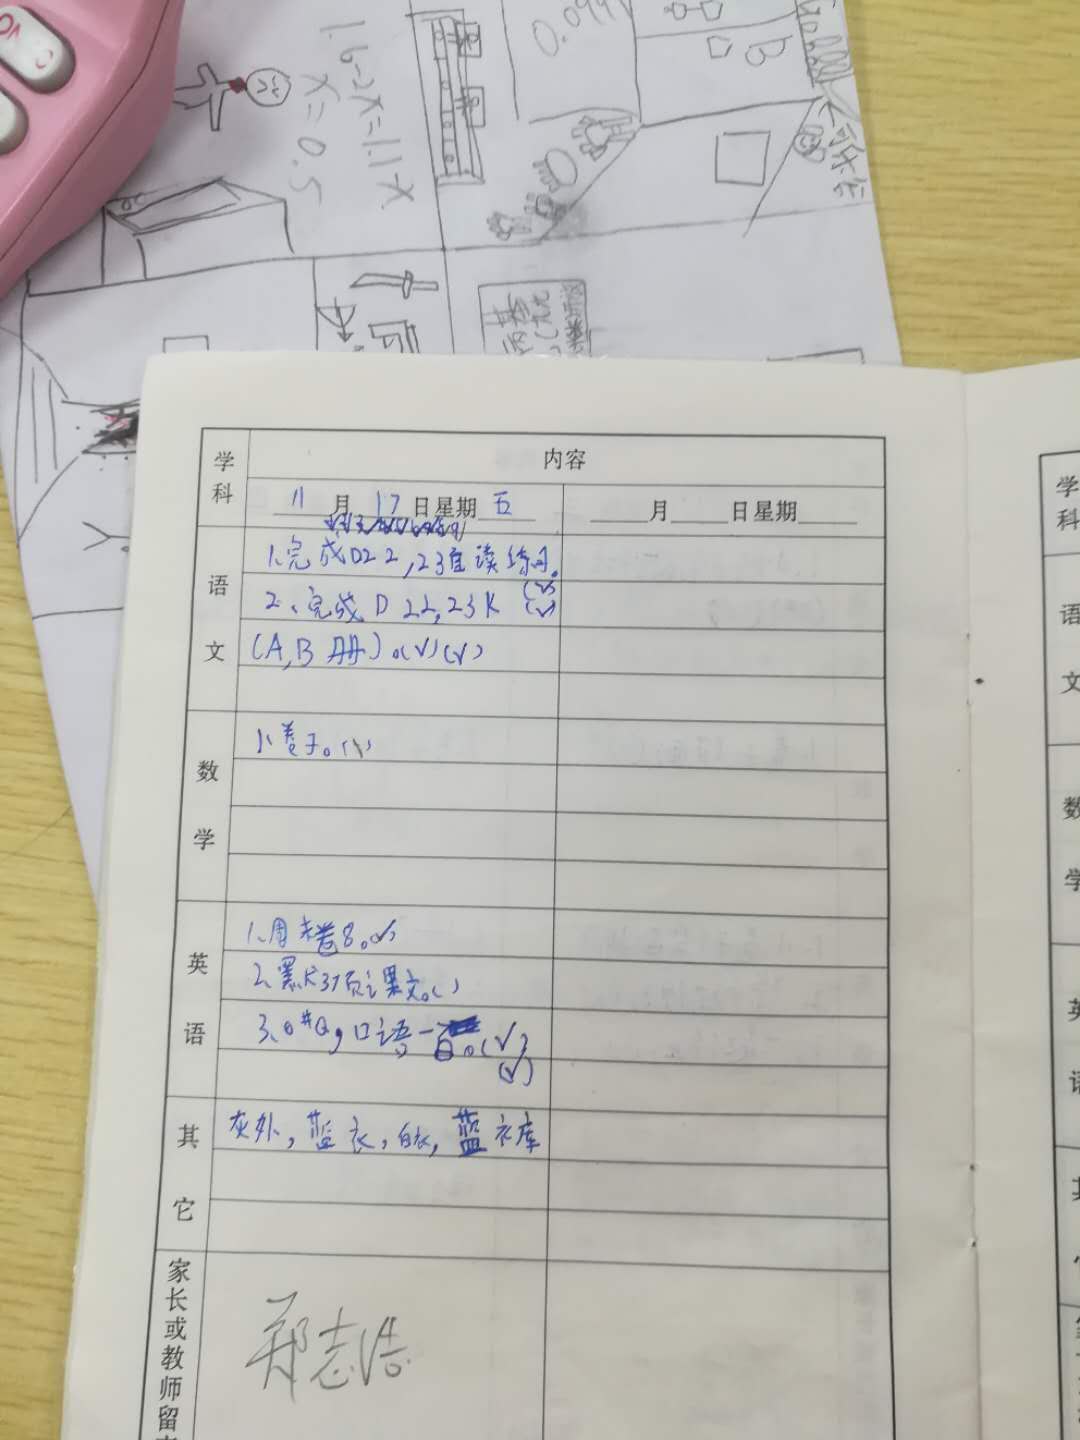 1.6-2x=1.1-x
x=0.5
0.099
b
可乐
学科
内容
11月17日星期五
月 日星期
语文
1.完成D22,23 读练习。(√)
2、完成D 22,23K (√)
(A,B册)。(√)(√)
数学
1、卷子。(\)
英语
1、周末卷8。(√)
2、默长37页课文。( )
3、口语一 。(√)
(√)
其它
灰外,蓝衣,白衣,蓝衣库
家长或教师留
郑志浩
学科
语文
数学
英语
其